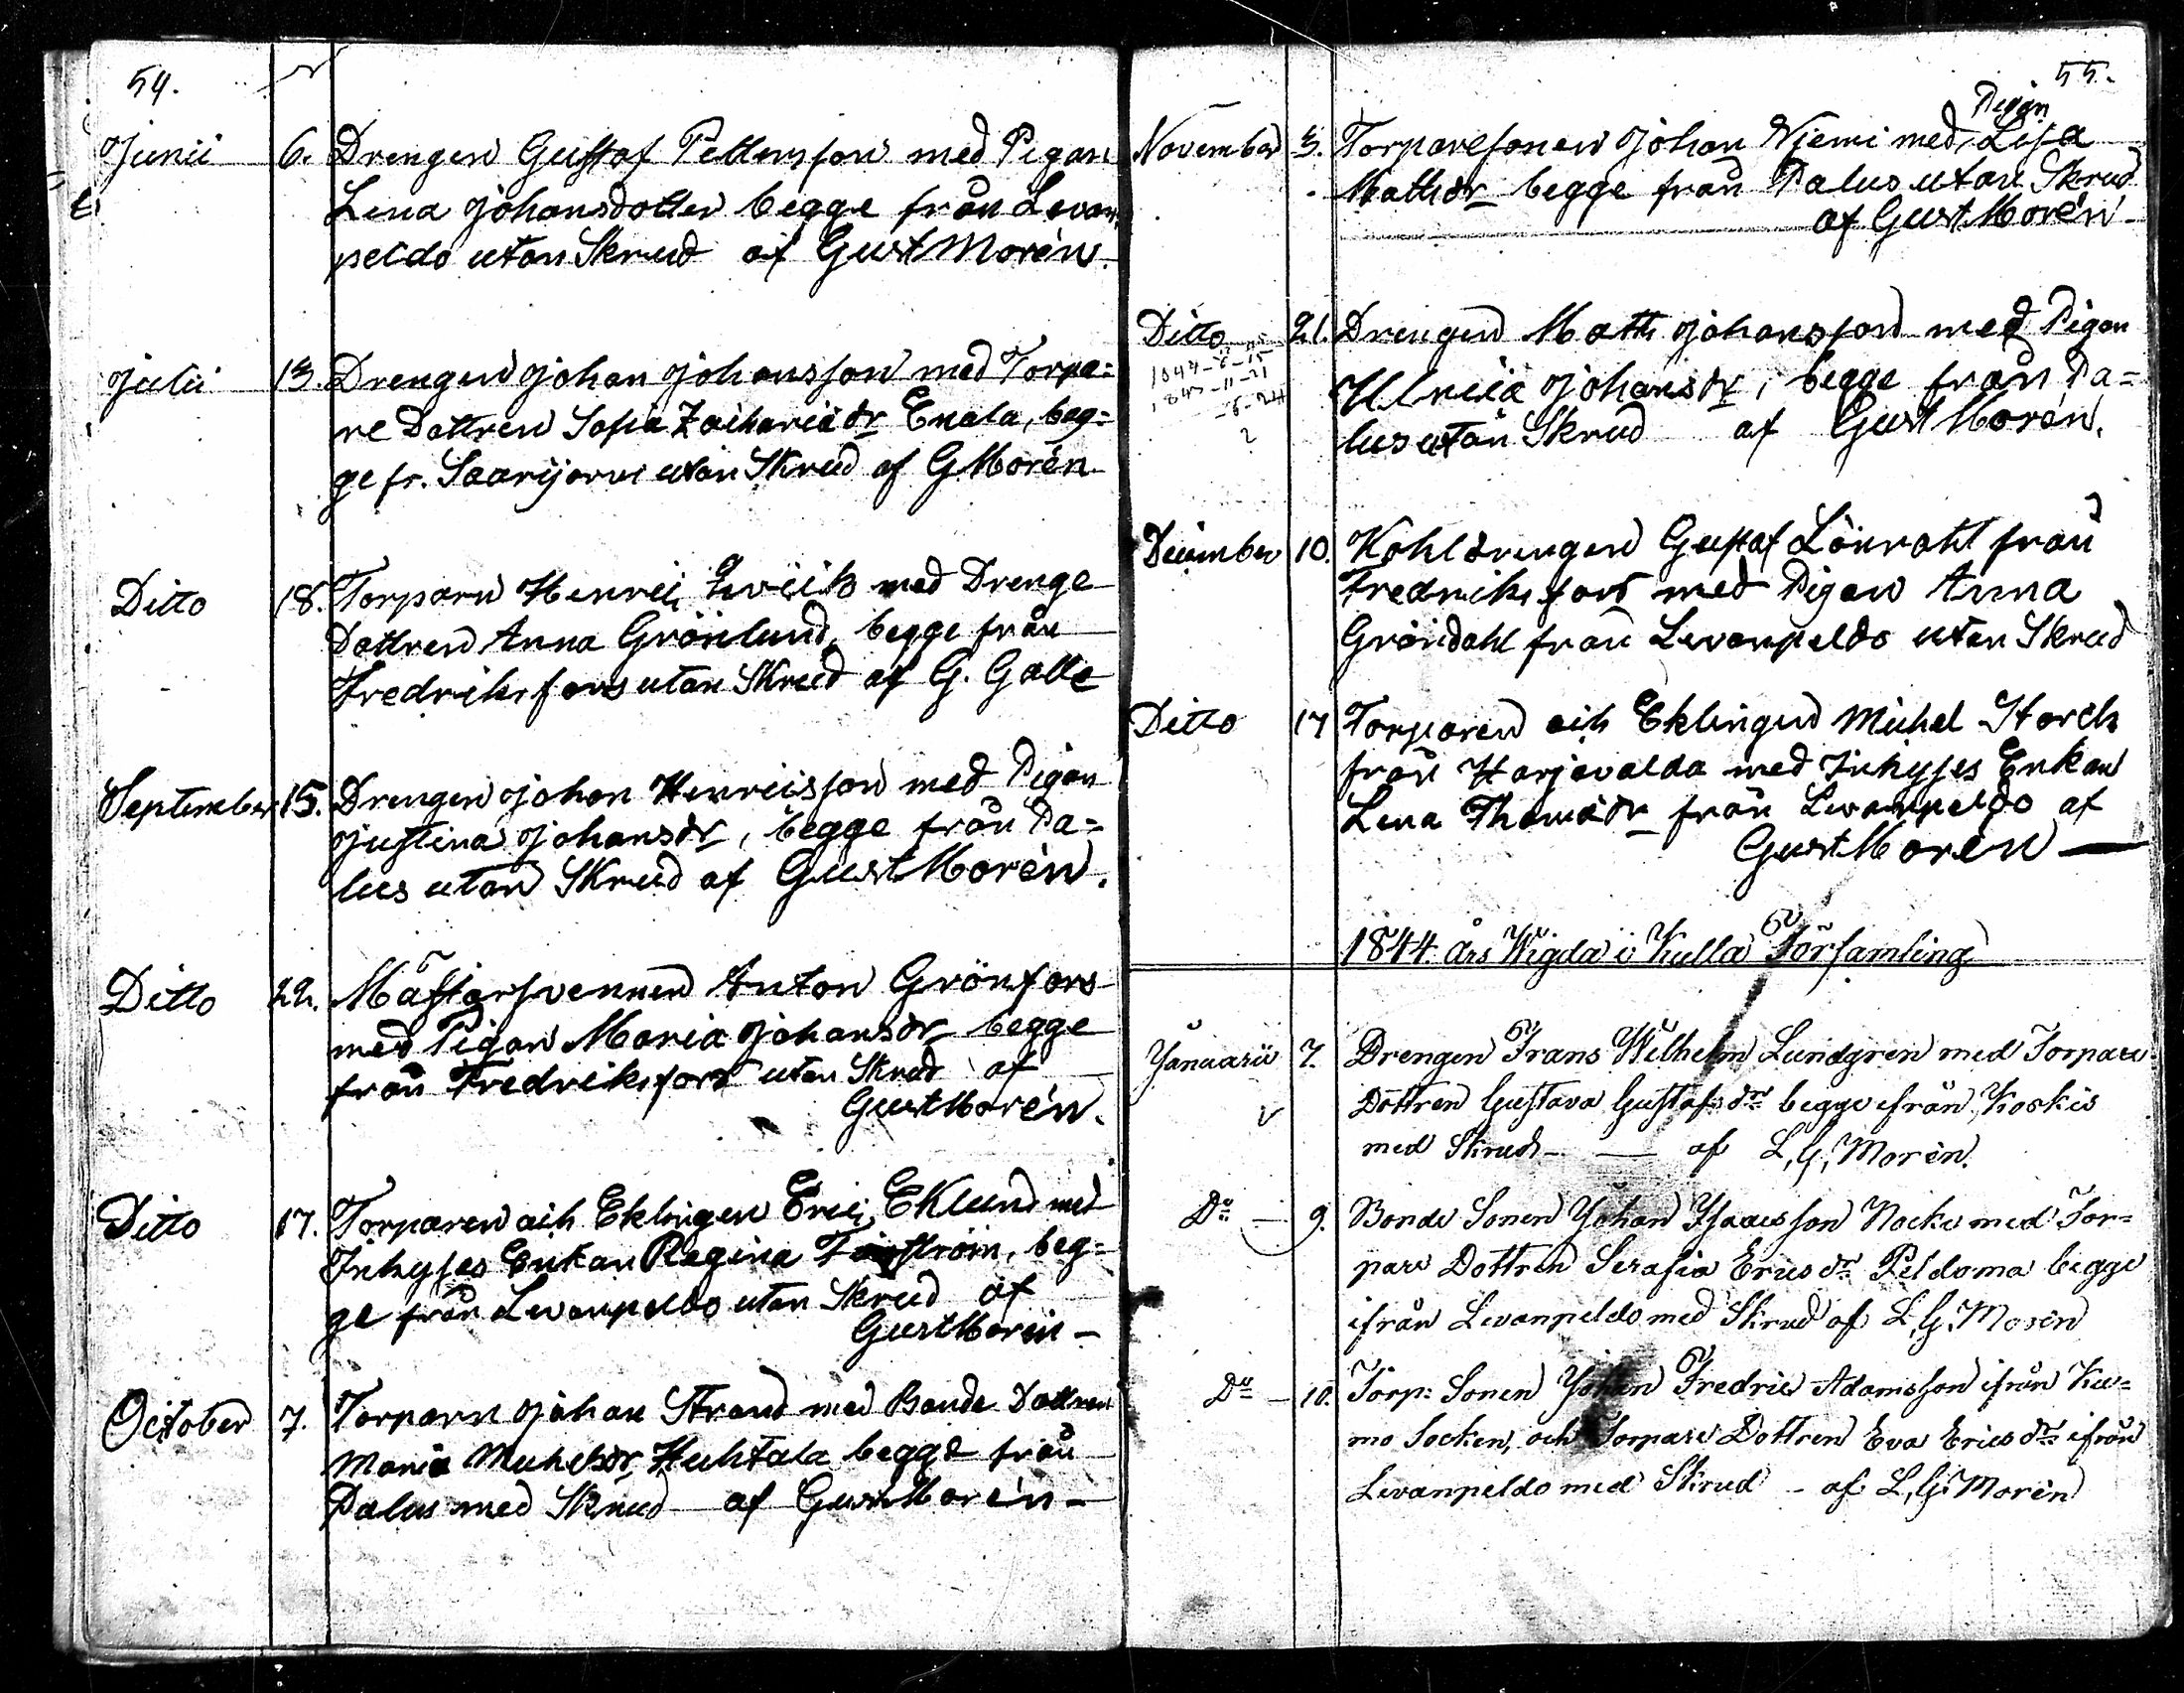 54.
Junii 6. Drengen Gustaf Pettersson med Pigan
Lena Johansdotter begge från Levan
peldo utan Skrud af Gust Morén.
Julii 13. Drengen Johan Johansson med Torpa=
re Dottren Sofia Zachariædr Enala, beg=
ge fr. Saarijarvi utan Skrud af G Morén
Ditto 18. Torparn Henric Qwick med Drenge
Dottren Anna Grönlund, begge från
Fredriksfors utan Skrud af G. Galle
September 15. Drengen Johan Henricsson med Pigan
Justina Johansdr, begge från Pa=
lus utan Skrud af Gust Morén.
Ditto 22. Mästarsvennen Anton Grönfors
med Pigan Maria Johansdr begge
från Fredriksfors utan Skrud af
Gust Morén.
Ditto 17. Torparen och Eklingen Eric Eklund med
Inhyses Enkan Regina beg=
ge från Levanpeldo utan Skrud af
Gust Morén -
October 7. Torparn Johan Strand med Bonde Dottren
Maria Michelsdr Huhtala begge från
Palus med Skrud af Gust Morén -
55.
Pigan
November 3. Torparesonen Johan Njemi med Lisa
Mattsdr begge från Palus utan Skrud
af Gust Morén -
Ditto 21. Drengen Matts Johansson med Pigan
1844-8-15
1843-11-21
-8-24
2
Ulrica Johansdr, begge från Pa=
lus utan Skrud af Gust Morén.
December 10. Kohldrengen Gustaf Lönroht från
Fredriksfors med Pigan Anna
Gröndahl från Levanpeldo utan Skrud
Ditto 17 Torparen och Eklingen Michel Storck
från Harjavalda med Inhyses Enkan
Lena Thomædr från Levanpeldo af
Gust Morén —
1844 års Wigda i Kulla Församling
Januarii 7. Drengen Frans Wilhelm Lundgren med Torpare
Dottren Gustava Gustafsdr begge ifrån Koskis
med Skrud — af L, G, Morén.
Do — 9. Bonde Sonen Johan Isaacsson Nocke med Tor=
pare Dottren Serafia Ericsdr Peldoma begge
ifrån Levanpeldo med Skrud af L, G. Morén
Do — 10. Torp: Sonen Johan Fredric Adamsson ifrån Ku=
mo Socken, och Torpare Dottren Eva Ericsdr ifrån
Levanpeldo med Skrud - af L, G. Morén